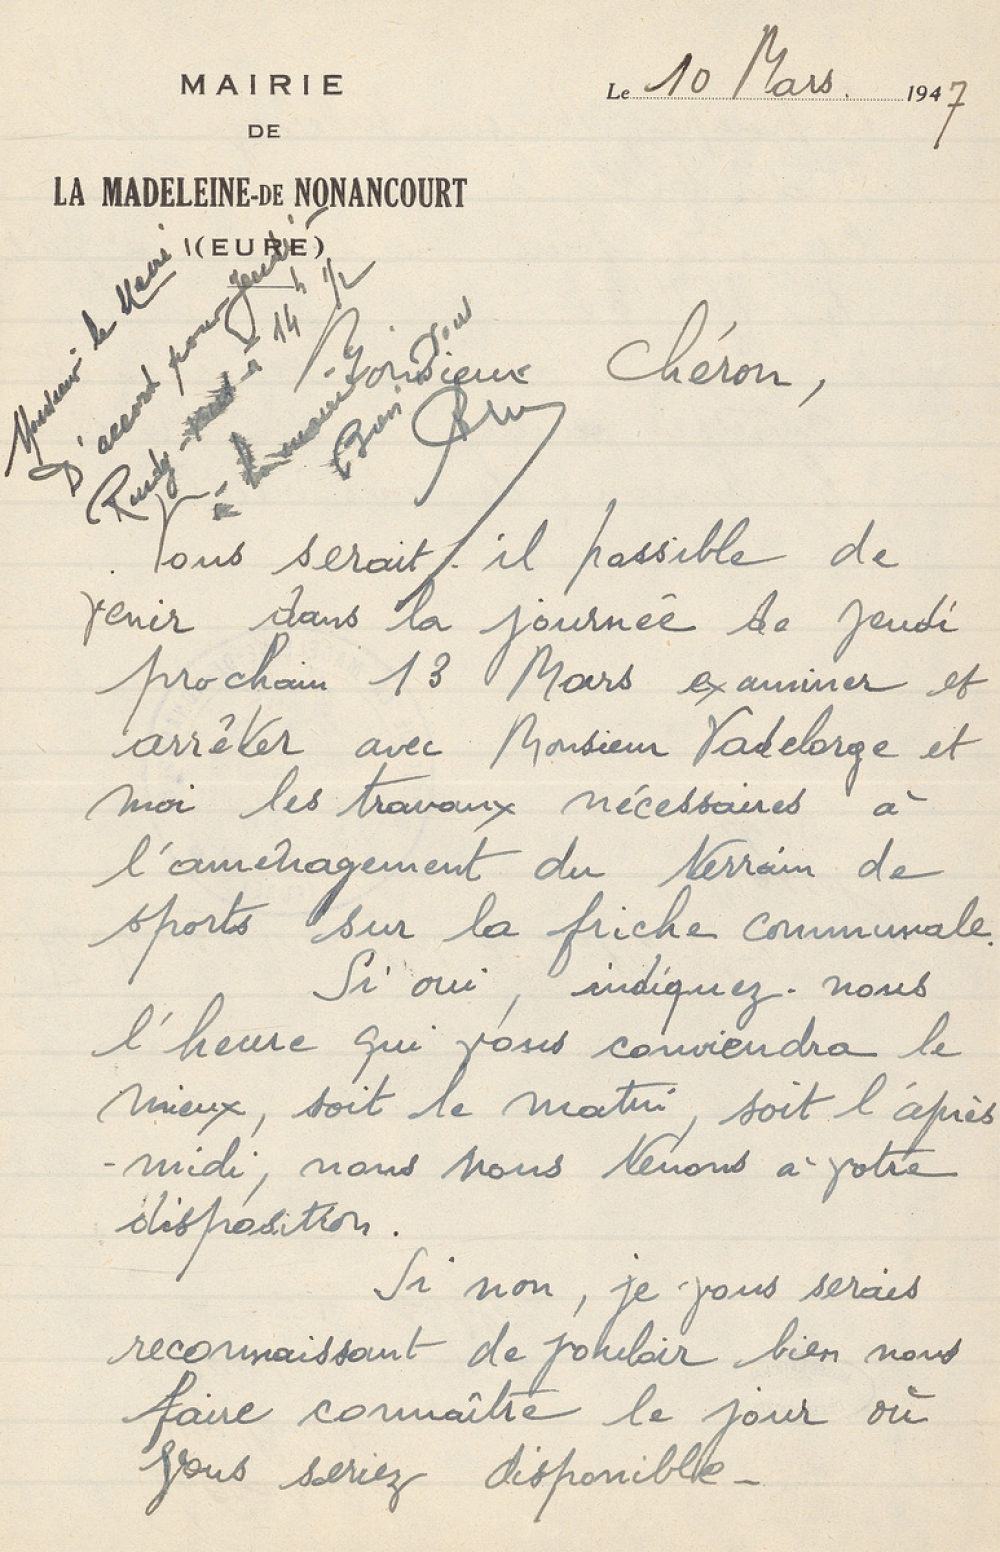 MAIRIE
DE
LA MADELEINE-DE NONANCOURT
(EURE)
Le 10 Mars. 1947
Monsieur le Maire
D'accord pour Jeudi
à 14h 1/2
Monsieur Chéron,
Vous serait-il possible de
venir dans la journée de jeudi
prochain 13 Mars examiner et
arrêter avec Monsieur Vadelorge et
moi les travaux nécessaires à
l'aménagement du terrain de
sports sur la friche communale.
Si oui, indiquez-nous
l'heure qui vous conviendra le
mieux, soit le matin, soit l'après
-midi, nous nous tenons à votre
disposition.
Si non, je vous serais
reconnaissant de vouloir bien nous
faire connaître le jour où
vous seriez disponible -